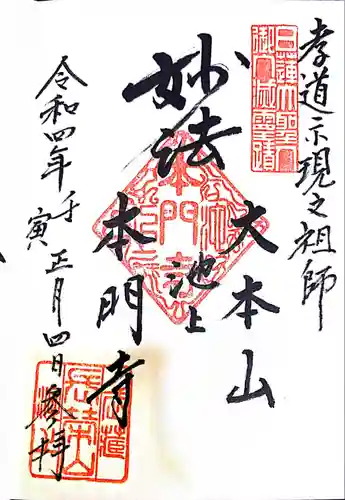 孝道示現之祖師
日蓮大聖人
御入滅靈蹟
妙法
大本山
池上
本門寺
令和四年壬寅正月四日参拝
本門
長榮山